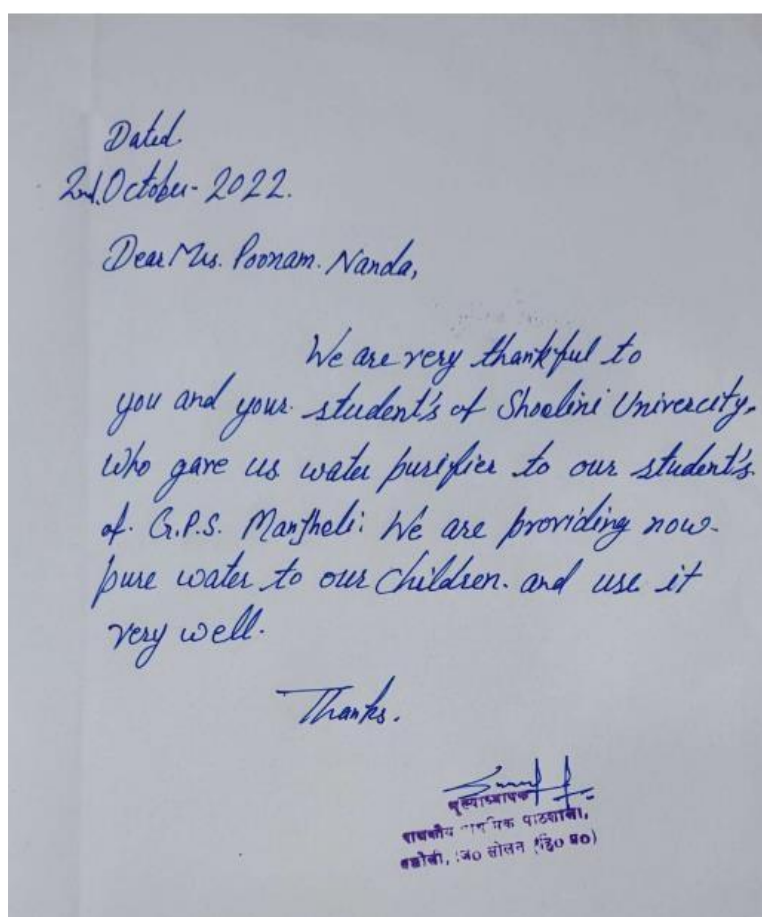 Dated.
2nd. October- 2022.
Dear Mrs. Poonam. Nanda,
We are very thankful to
you and your student's of Shoolini Univercity,
who gave us water purifier to our student's.
of G.P.S. Manjholi. We are providing now-
pure water to our children. and use it
very well.
Thanks.
मुख्याध्यापक
राजकीय पाठशाला,
सोलन (हि० प्र०)